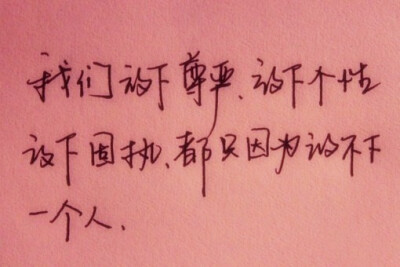 我们放下尊严、放下个性
放下固执、都只因为放不下
一个人、